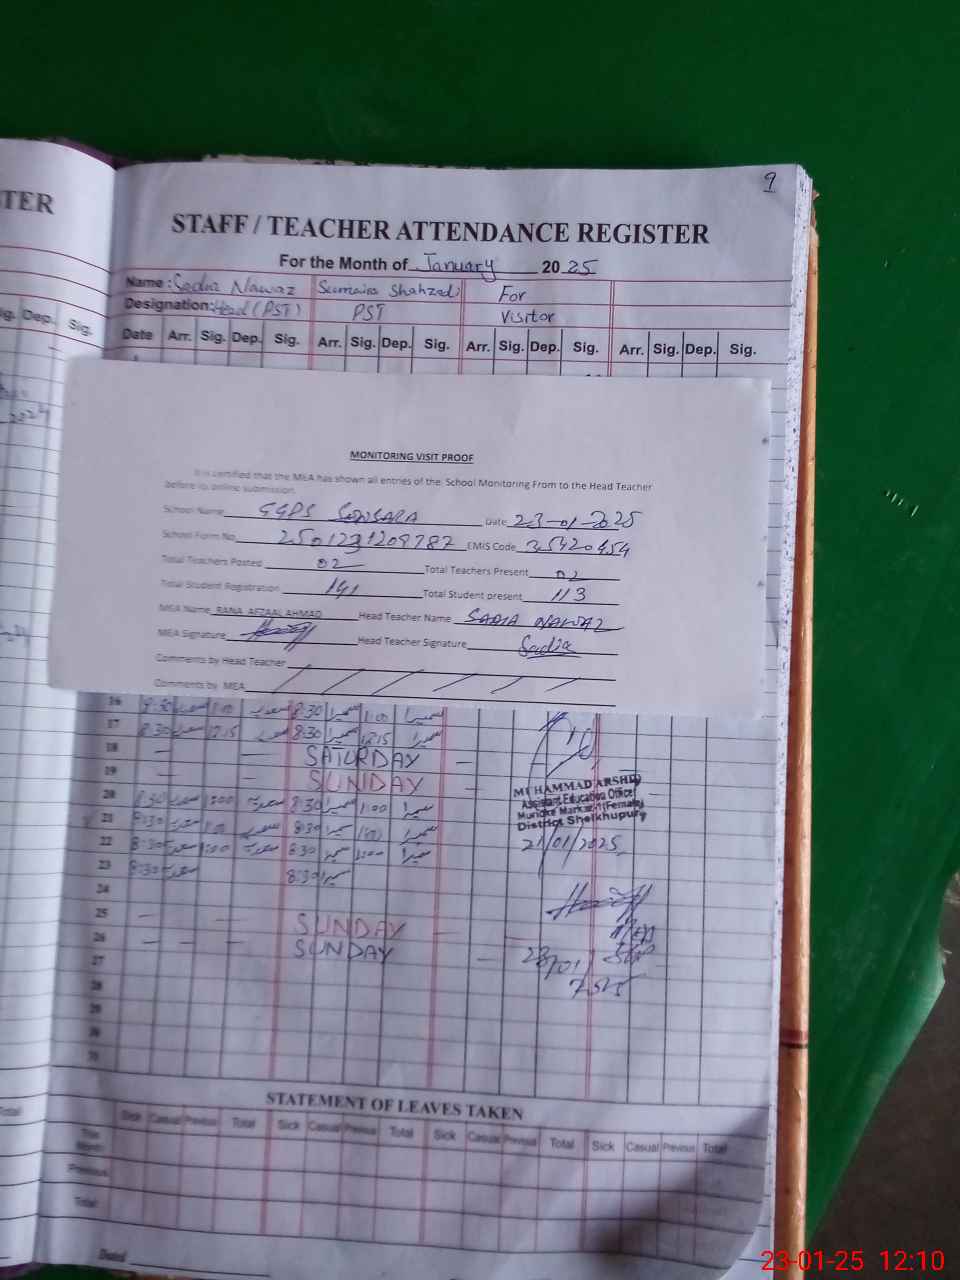 9
TER
STAFF / TEACHER ATTENDANCE REGISTER
For the Month of January 2025
Name : Sadia Nawaz Sumaira Shahzadi For
Designation: Head (PST) PST Visitor
ig. Dep. Sig.
Date Arr. Sig. Dep. Sig. Arr. Sig. Dep. Sig. Arr. Sig. Dep. Sig. Arr. Sig. Dep. Sig.
MONITORING VISIT PROOF
It is certified that the MEA has shown all entries of the School Monitoring From to the Head Teacher
before its online submission.
School Name GGPS Date 23-01-2025
School Form No. EMIS Code 35420454
Total Teachers Posted 02 Total Teachers Present 02
Total Student Registration 141 Total Student present 113
MEA Name RANA AFZAAL AHMAD Head Teacher Name SADIA NAWAZ
MEA Signature Head Teacher Signature Sadia
Comments by Head Teacher
Comments by MEA
16 8:30 سعدیہ 1:00 سعدیہ 8:30 سمیرا 1:00 سمیرا
17 8:30 سعدیہ 12:15 سعدیہ 8:30 سمیرا 12:15 سمیرا
18 — — SATURDAY —
19 — — SUNDAY
MUHAMMAD ARSHED
20 8:30 سعدیہ 1:00 سعدیہ 8:30 سمیرا 1:00 سمیرا
Assistant Education Officer
Muridke Markaz-1 (Female)
District Sheikhupura
21 8:30 سعدیہ 1:00 سعدیہ 8:30 سمیرا 1:00 سمیرا
21/01/2025
22 8:30 سعدیہ 1:00 سعدیہ 8:30 سمیرا 1:00 سمیرا
23 8:30 سعدیہ 8:30 سمیرا
24
25 — — SUNDAY
26 — — — SUNDAY —
MEA
SKP
27
28
29
30
STATEMENT OF LEAVES TAKEN
Sick Casual Previous Total Sick Casual Previous Total Sick Casual Previous Total Sick Casual Previous Total
This Month
Previous
Total
Total
Dated
23-01-25 12:10